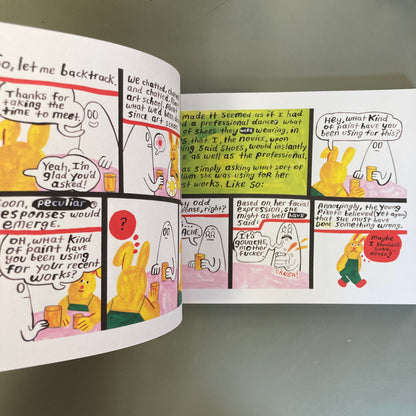 So, let me backtrack.
Thanks for
taking the
time to meet.
Yeah, I'm
glad you'd
asked!
We chatted,
and chatted,
art school.
what we'd been
since art sch
Soon, peculiar
responses would
emerge.
OH, what kind
of paint have
you been using
for your recent
works?
?
made it seemed as if I had
d a professional dancer what
of shoes they were wearing, in
s that I, the novice, upon
ing said shoes, would instantly
e as well as the professional.
as simply asking what sort of
ium she was using for her
st works. Like so:
Hey, what kind
of paint have you
been using for this?
y odd
onse, right?
Based on her facial
expression, she
might as well have
said:
It's
gouache,
mother
fucker.
Annoyingly, the young
Pivoto believed (yet again)
that she must have
done something wrong.
Maybe
I shouldn't
have
asked?